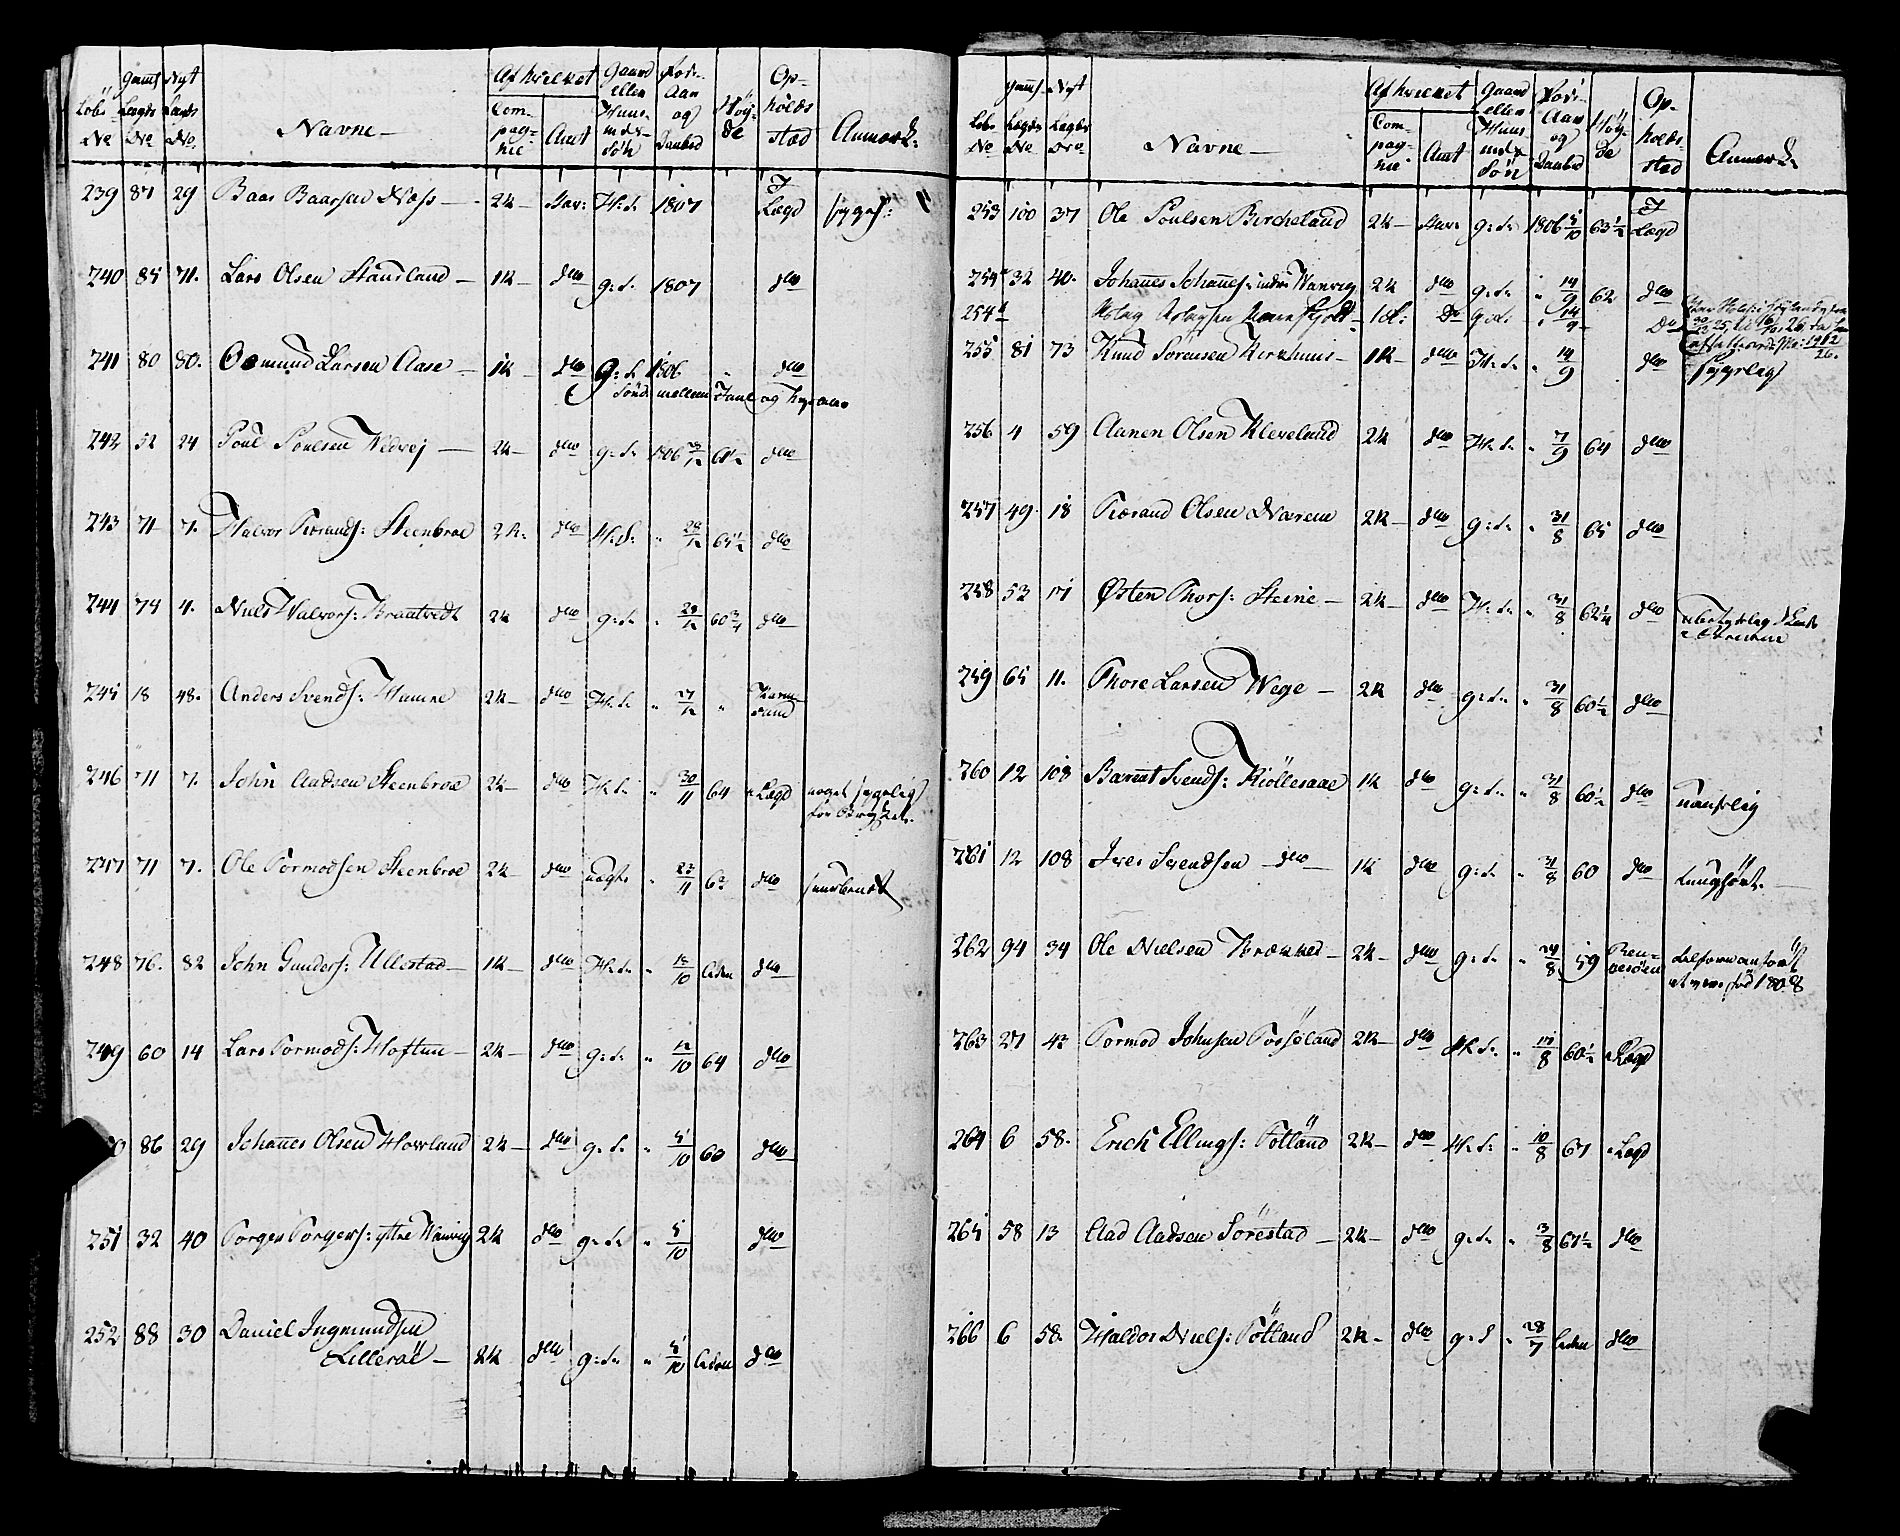 Löbe No | gaml Lægds No | Nyt Lægds No. | Navne | Af hvilket Compagnie | Amt | Gaard eller Huusmds Sön | Föde Aar og Datum | Höyde | Opholds stæd | Anmærk:
239 87 29 Baar Baarsen Næss 2k Stav: H:s. 1807 I Lægd syges:
240 85 71. Lars Olsen Standland 1k do g:s. 1807 do
241 80 80. Osmund Larsen Aase 1k do g:s. 1806 " do
född mellem Juul og Kyr
242 52 24 Poul Poulsen Wedvej 2k do g:s. 1806 1/2 do
243 71 7. Halvor Torands: Steenbroe 2k. do H:s. " 28/12 65½ do
244 74 4. Niels Halvors: Braatvedt 2k do g:s. " 29/12 60¾ do
245 18 48. Anders Svends: Hamre 2k do H:s. " 27/12 "
246 71 7. John Aadsen Steenbroe 2k do H:s. " 30/11 64 Lægd noget sygelig
for Brystet.
247 71 7. Ole Tormodsen Steenbroe 2k do " 23/11 do
248 76. 82 John Gunders: Ullestad 1k do H:s. " 13/10 liden do
249 60 14 Lars Tormods: Hoftun 2k do g:s. " 12/10 64 do
0 86 29 Johannes Olsen Hovland 2k do g:s. " 5/10 60 do
251 32 40 Torger Torgers: yttre Wanvig 2k do g:s. " 5/10 do
252 88 30 Daniel Ingmundsen
Lilleraae 2k do g:s. " 5/10 liden do
Löbe No | gaml. Lægds No | Nyt Lægds No | Navne | Af hvilket Compagnie | Amt | Gaard eller Huusmds Sön | Föde Aar og Datum | Höyde | Opholds stæd | Anmærk.
253 100 37 Ole Poulsen Bircheland 2k Stav: g:s. 1806 5/10 63½ I Lægd
254 32 40. Johannes Johannes: indre Wanvig 2k do g:s. " 14/9 62 do
254 Aslag Aslagsen 1st: Do g:s. " 14/9 Do
255 81 73 Knud Sörensen Kirkhuus 1k do H:s. " 14/9 do sygelig
256 4 59 Aanen Olsen Kleveland 2k do H:s. " 7/9 64 do
257 49 18 Torand Olsen Nærem 2k do g:s. " 31/8 65 do
258 53 171 Østen Thors: Steine 2k do H:s. " 31/8 62¼ do ubetydelig
259 65 11. Thore Larsen Wege 2k do g:s. " 31/8 60½ do
260 12 108 Barent Svends: Kiöllesaae 1k do g:s. " 31/8 60½ do
261 12 108 Iver Svendsen do 1k do g:s. " 31/8 60 do
262 94 34 Ole Nielsen Brækked 2k do g:s. " 24/8 59 Rennesöen
at være född 1808
263 27 43 Tormod Johnsen Tossöland 2k do H:s. " 17/8 60½ Lægd
264 6 58. Erich Ellings: Tötland 2k do H:s. " 10/8 67 Lægd
265 58 13 Aad Aadsen Sörestad 2k do g:s. " 3/8 do
266 6 58. Haldor Niels: Tötland 2k do g:s " 28/7 liden do